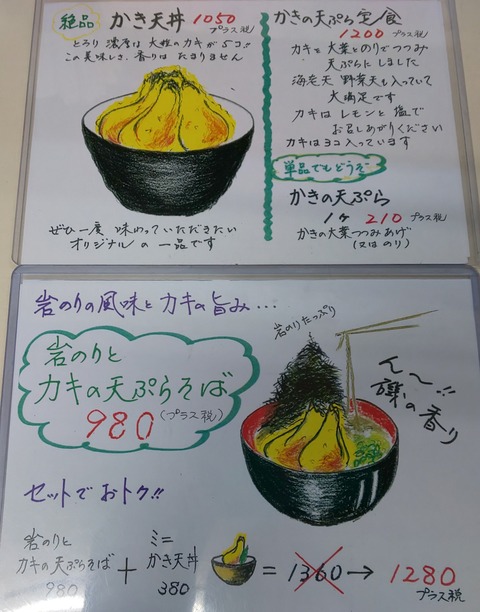 絶品 かき天丼 1050
プラス税
とろり 濃厚な 大粒のカキが 5コ!!
この美味しさ、香りは たまりません
ぜひ一度 味わっていただきたい
オリジナル の 一品です
かきの天ぷら定食
1200 プラス税
カキを 大葉とのりでつつみ
天ぷらにしました
海老天 野菜天も入っていて
大満足です
カキは レモンと 塩で
お召しあがりください
カキは 3コ 入っています
単品でもどうぞ
かきの天ぷら
1ヶ 210 プラス税
かきの大葉つつみあげ
(又は のり)
岩のりの風味と カキの旨み…
岩のりと
カキの天ぷらそば
980 (プラス税)
岩のりたっぷり
ん〜!!
磯の香り
セットでおトク!!
岩のりと
カキの天ぷらそば
980
+
ミニ
かき天丼
380
= 1360 → 1280
プラス税